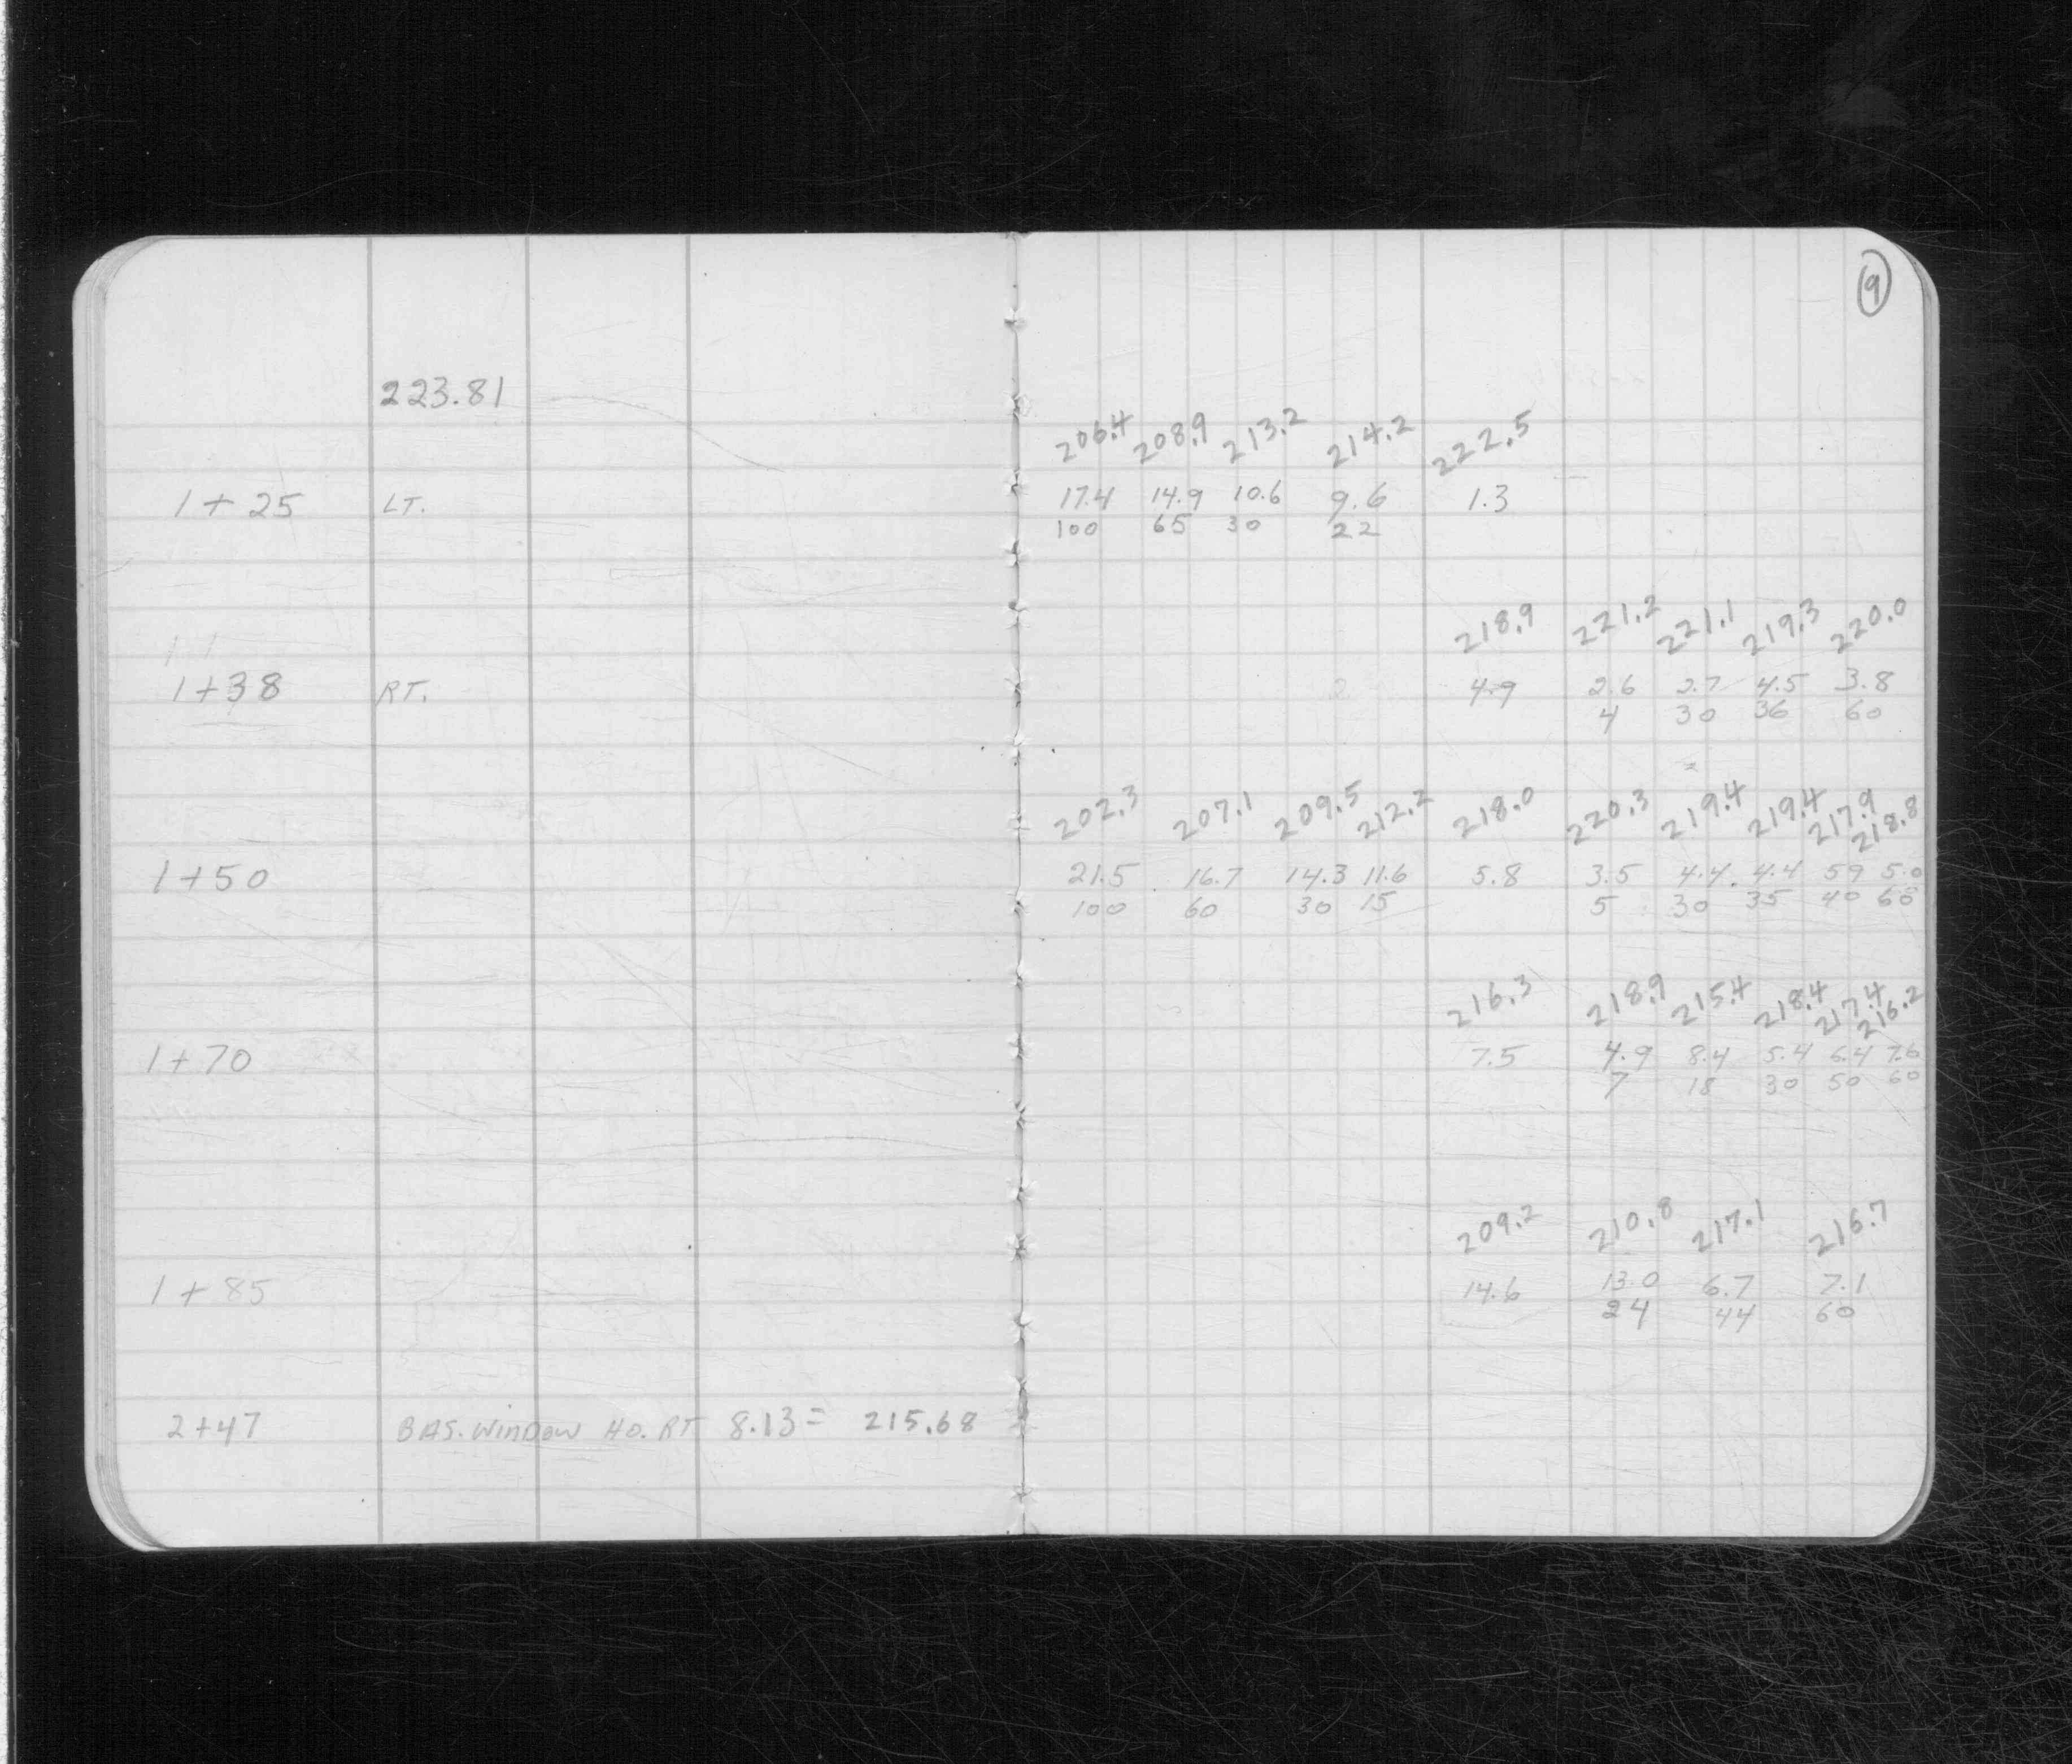 9
223.81
206.4 208.9 213.2 214.2 222.5
1+25 LT. 17.4 14.9 10.6 9.6 1.3
100 65 30 22
218.9 221.2 221.1 219.3 220.0
1+38 RT. 4.9 2.6 2.7 4.5 3.8
4 30 36 60
202.3 207.1 209.5 212.2 218.0 220.3 219.4 219.4 217.9 218.8
1+50 21.5 16.7 14.3 11.6 5.8 3.5 4.4 4.4 59 5.0
100 60 30 15 5 30 35 40 60
216.3 218.9 215.4 218.4 217.4 216.2
1+70 7.5 4.9 8.4 5.4 6.4 7.6
7 18 30 50 60
209.2 210.8 217.1 216.7
1+85 14.6 13.0 6.7 7.1
24 44 60
2+47 BAS. WINDOW HO. RT 8.13 = 215.68